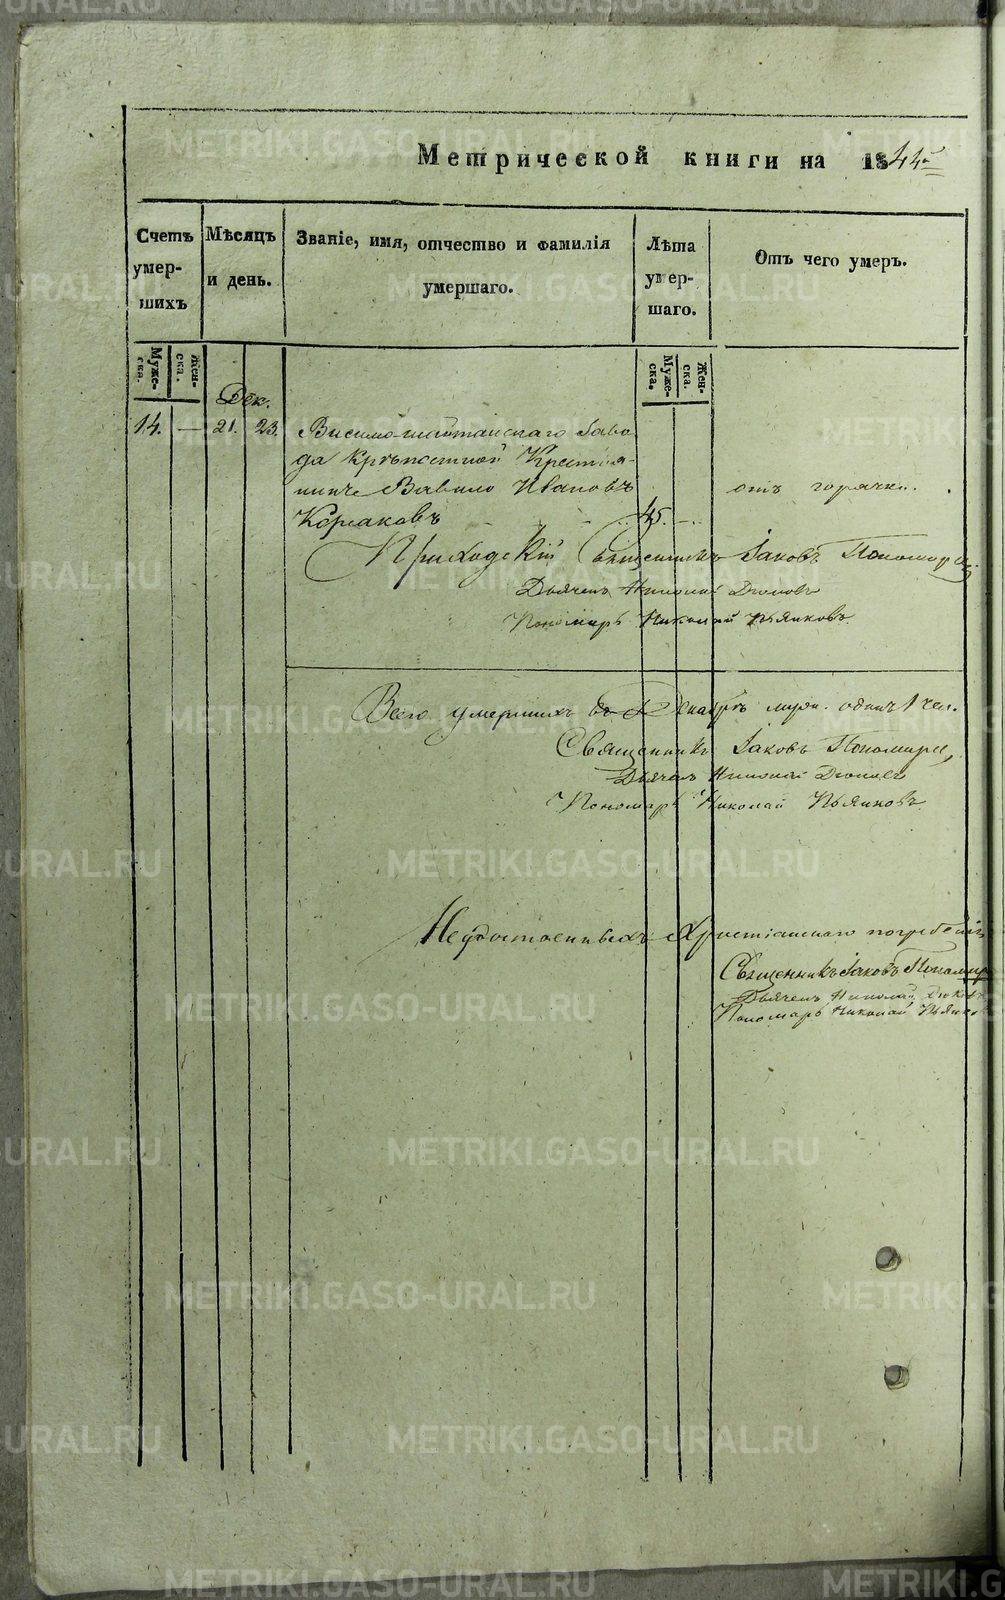 Метрической книги на 1844й
Счетъ умер-шихъ
Мѣсяцъ и день.
Званіе, имя, отчество и фамилія умершаго.
Лѣта умер-шаго.
Отъ чего умеръ.
Муже-ска.
Жен-ска.
Муже-ска.
Жен-ска.
Дек.
14. — 21. 23. Висимо-шайтанскаго Заво
да крѣпостной Крестья-
нинъ Вавило Ивановъ отъ горячки.
Кормаковъ 45. —
Приходскій Священникъ Іаковъ Пономарев
Дьячекъ Николай
Пономарь Николай Пьянковъ
Всего умершихъ въ Декабрѣ муж. одинъ 1 чел.
Священникъ Іаковъ Пономарев
Дьячекъ Николай
Пономарь Николай Пьянковъ
Неудостоенныхъ Христіанскаго погребенія
Священникъ Іаковъ Пономар
Дьячекъ Николай
Пономарь Николай Пьянк
METRIKI.GASO-URAL.RU